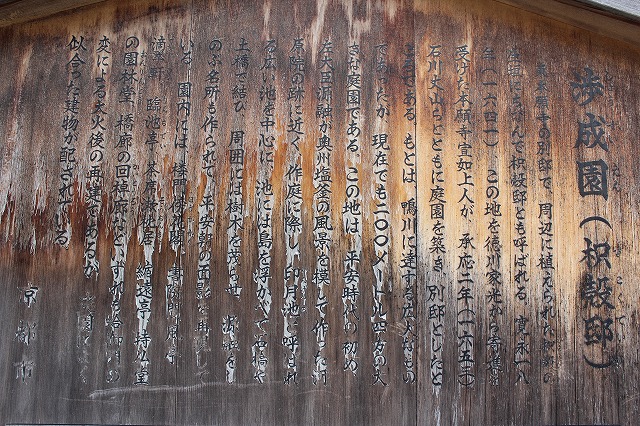 渉成園(枳殻邸)
東本願寺の別邸で、周辺に植えられた
にちなんで枳殻邸とも呼ばれる。寛永一八
年(一六四一)この地を徳川家光から寄
受けた本願寺宣如上人が、承応二年(一六五三)
石川丈山らとともに庭園を築き、別邸としたと
ころである。もとは、鴨川に達する広大なもの
であったが、現在でも二〇〇メートル四方の大
きな庭園である。この地は、平安時代の初め
左大臣源融が奥州塩釜の風景を模して作った河
原院の跡に近く、作庭に際し、印月池と呼ばれ
る広い池を中心に、池には島を浮かべて石橋や
土橋で結び、周囲には樹木を茂らせ、
のぶ名所も作られて、平安朝の面影を
いる。園内には、
滴翠軒、臨池亭、茶席 縮遠亭、持仏堂
の園林堂、橋廊の回棹廊など、いずれも
変による大火後の再建であるが、
似合った建物が配されている。
京都市